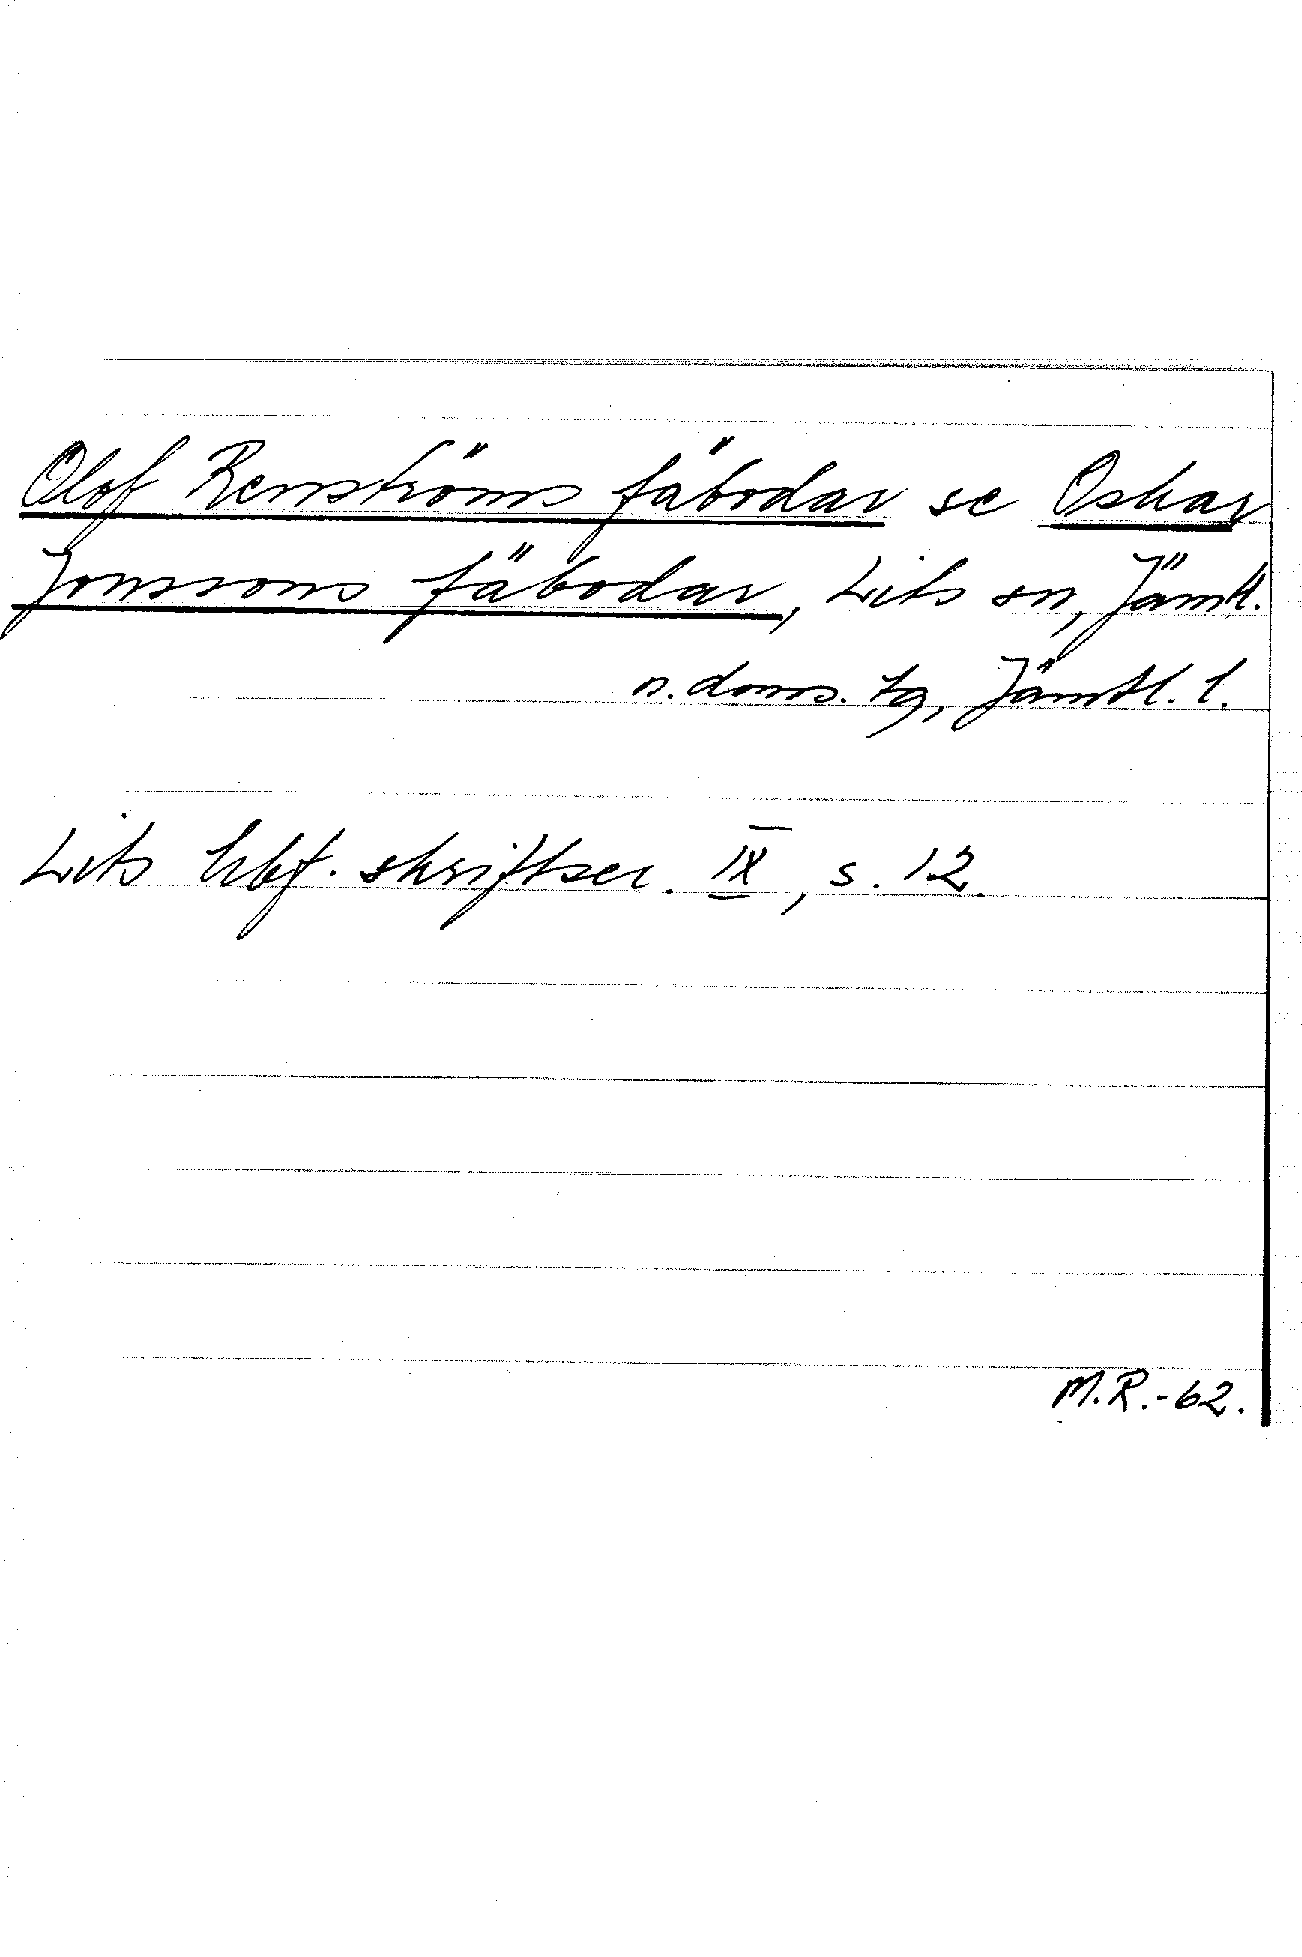 Olof Renströms fäbodar se Oskar
Jonssons fäbodar, Lits sn, Jämtl.
n. doms. tg, Jämtl. l.
Lits hbf. skriftser. IX, s. 12
M.R.-62.